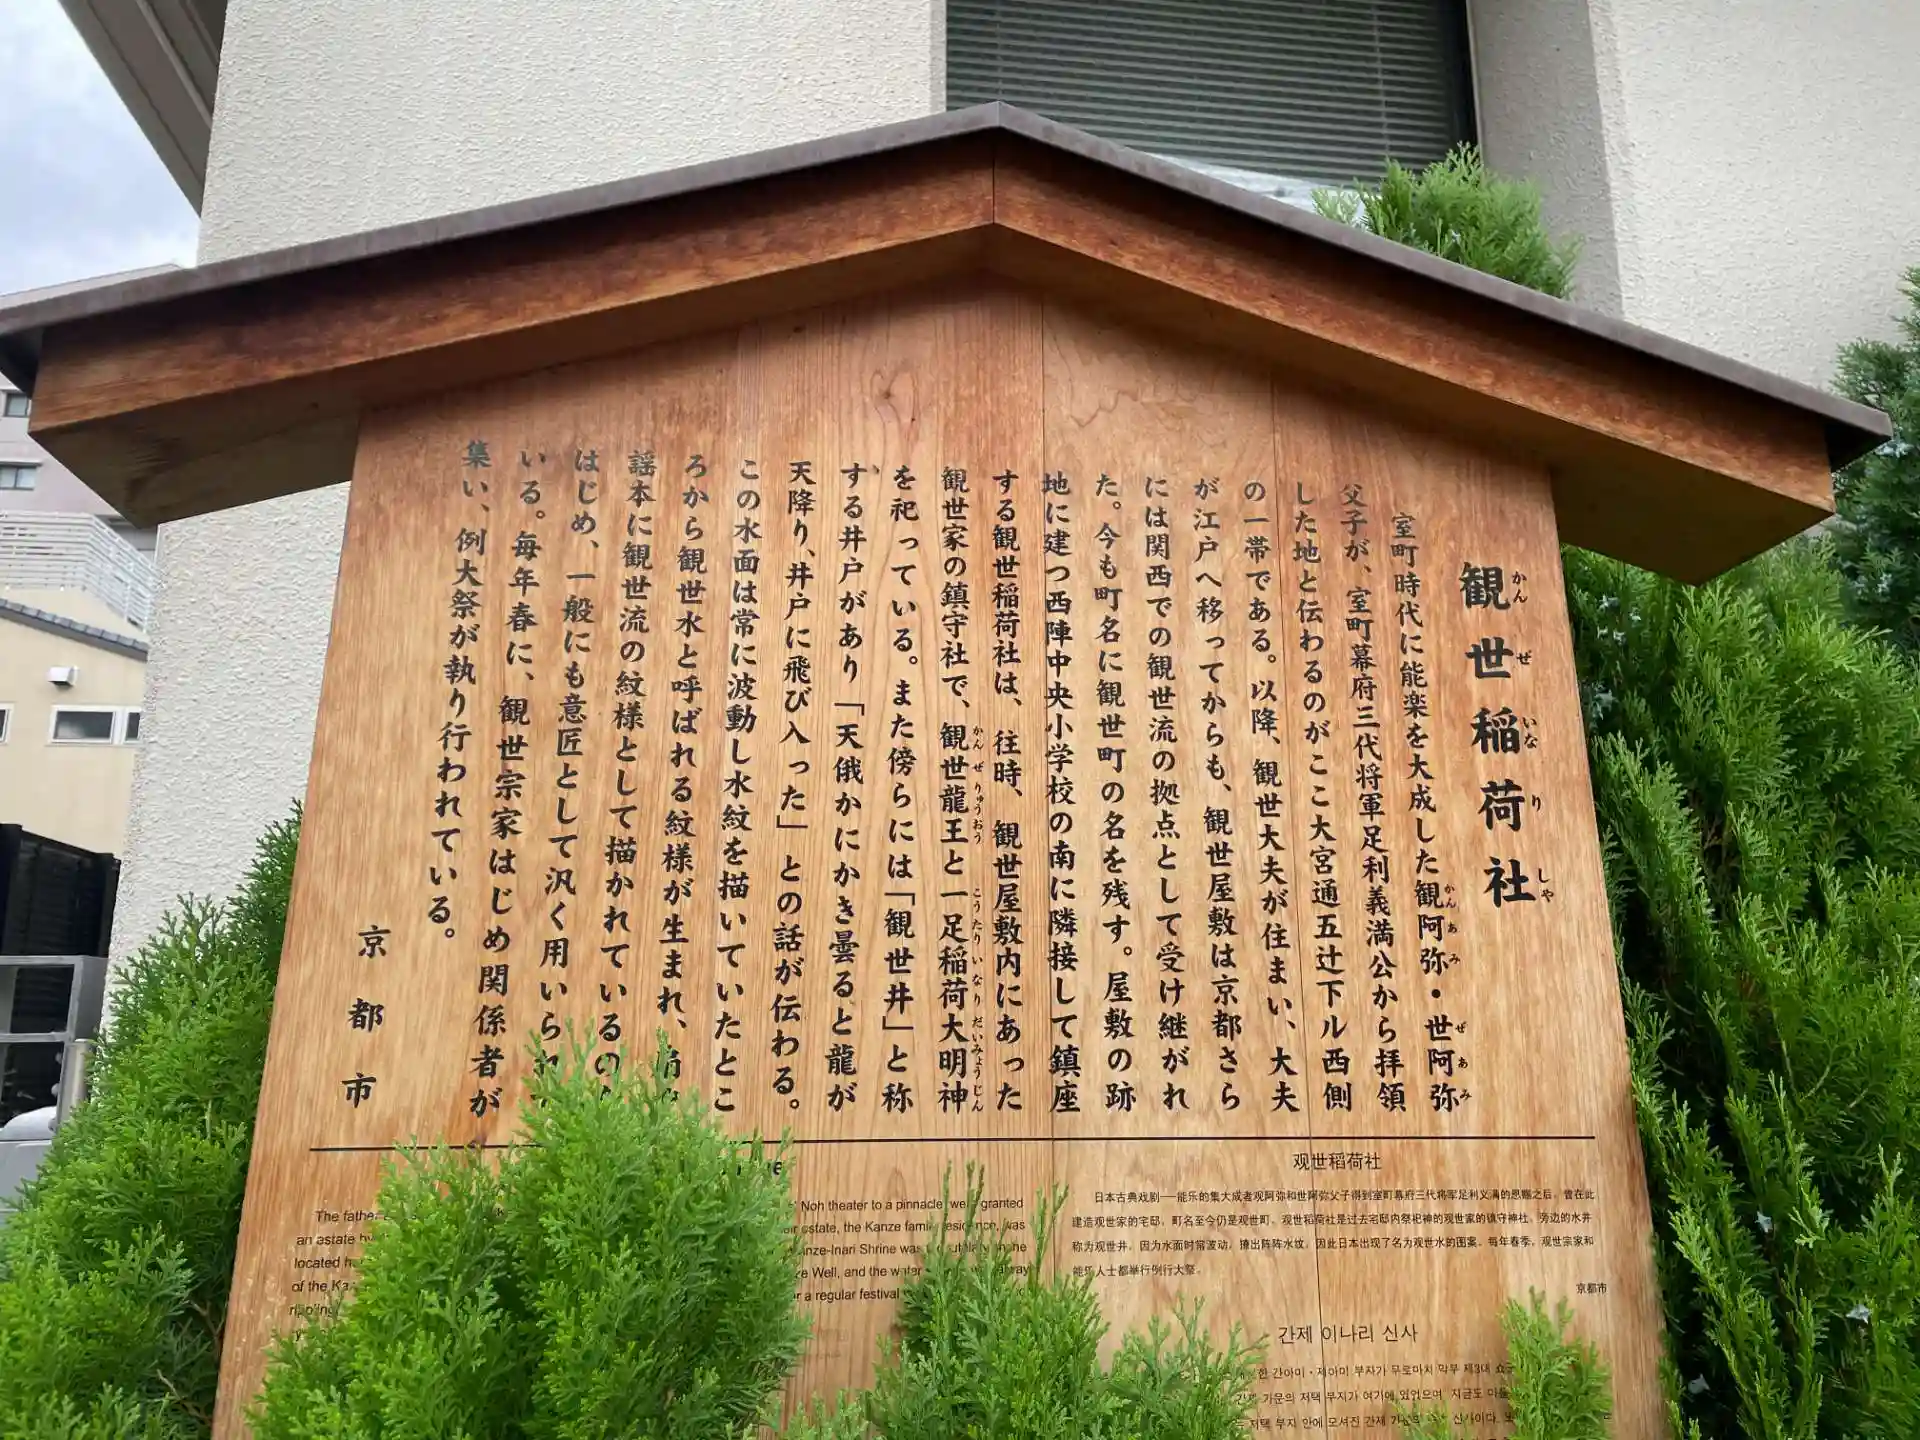 観世稲荷社
室町時代に能楽を大成した観阿弥・世阿弥
父子が、室町幕府三代将軍足利義満公から拝領
した地と伝わるのがここ大宮通五辻下ル西側
の一帯である。以降、観世大夫が住まい、大夫
が江戸へ移ってからも、観世屋敷は京都さら
には関西での観世流の拠点として受け継がれ
た。今も町名に観世町の名を残す。屋敷の跡
地に建つ西陣中央小学校の南に隣接して鎮座
する観世稲荷社は、往時、観世屋敷内にあった
観世家の鎮守社で、観世龍王と一足稲荷大明神
を祀っている。また傍らには「観世井」と称
する井戸があり「天俄かにかき曇ると龍が
天降り、井戸に飛び入った」との話が伝わる。
この水面は常に波動し水紋を描いていたとこ
ろから観世水と呼ばれる紋様が生まれ、
謡本に観世流の紋様として描かれているの
はじめ、一般にも意匠として汎く用いられ
いる。毎年春に、観世宗家はじめ関係者が
集い、例大祭が執り行われている。
京都市
The father
an estate by
located
of the
rippling
Noh theater to a pinnacle were granted
estate, the Kanze family residence, was
Shrine was the
Well, and the water
or a regular festival
观世稻荷社
日本古典戏剧——能乐的集大成者观阿弥和世阿弥父子得到室町幕府三代将军足利义满的恩赐之后，曾在此
建造观世家的宅邸，町名至今仍是观世町。观世稻荷社是过去宅邸内祭祀神的观世家的镇守神社，旁边的水井
称为观世井，因为水面时常波动，撩出阵阵水纹，因此日本出现了名为观世水的图案。每年春季，观世宗家和
能乐人士都举行例行大祭。
京都市
간제 이나리 신사
한 간아미・제아미 부자가 무로마치 막부 제3대
간제 가문의 저택 부지가 여기에 있었으며, 지금도
저택 부지 안에 모셔진 간제 신사이다.